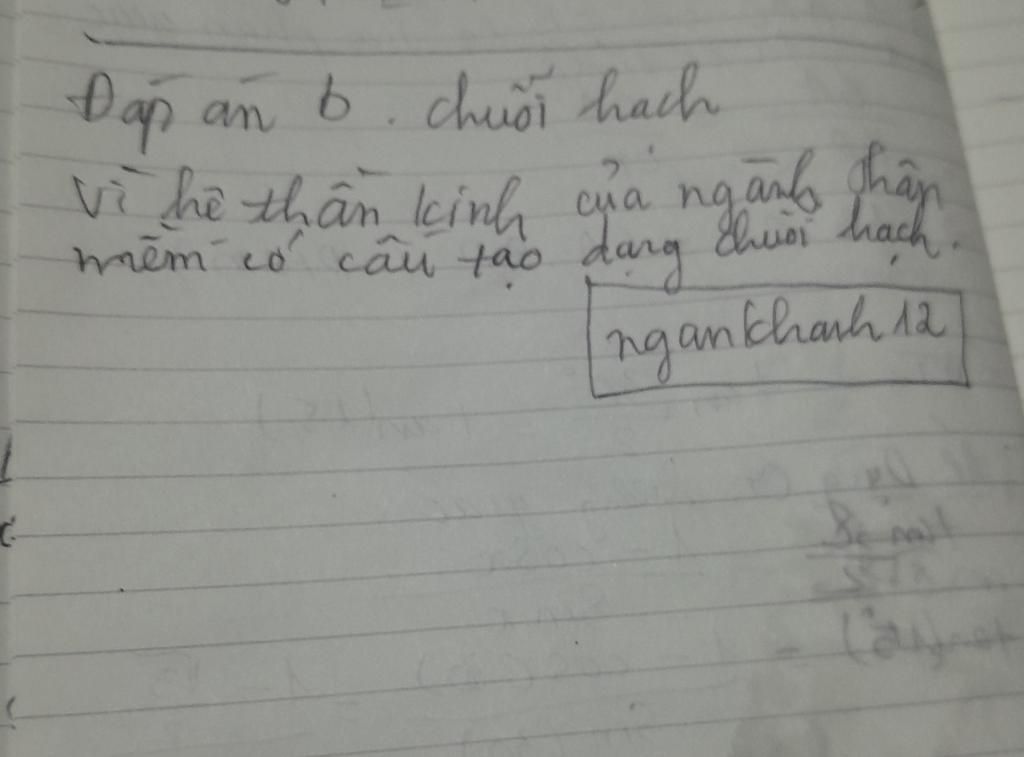 Đáp án b. chuỗi hach
Vì hê thần kinh của ngành thân
mềm có cấu tạo dạng chuỗi hạch.
ngankhanh12